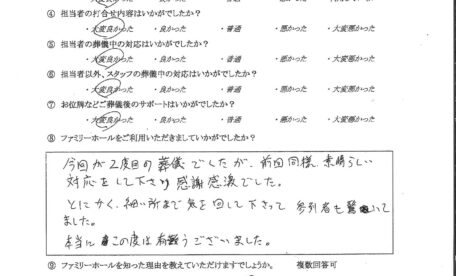 ④ 担当者の打合せ内容はいかがでしたか?
・大変良かった ・良かった ・普通 ・悪かった ・大変悪かった
⑤ 担当者の葬儀中の対応はいかがでしたか?
・大変良かった ・良かった ・普通 ・悪かった ・大変悪かった
⑥ 担当者以外、スタッフの葬儀中の対応はいかがでしたか?
・大変良かった ・良かった ・普通 ・悪かった ・大変悪かった
⑦ お位牌などご葬儀後のサポートはいかがでしたか?
・大変良かった ・良かった ・普通 ・悪かった ・大変悪かった
⑧ ファミリーホールをご利用いただきましていかがでしたか?
今回が2度目の葬儀でしたが、前回同様、素晴らしい
対応をして下さり感謝感激でした。
とにかく、細い所まで気を回して下さって 参列者も驚いて
ました。
本当にこの度は有難うございました。
⑨ ファミリーホールを知った理由を教えていただけますでしょうか。 複数回答可